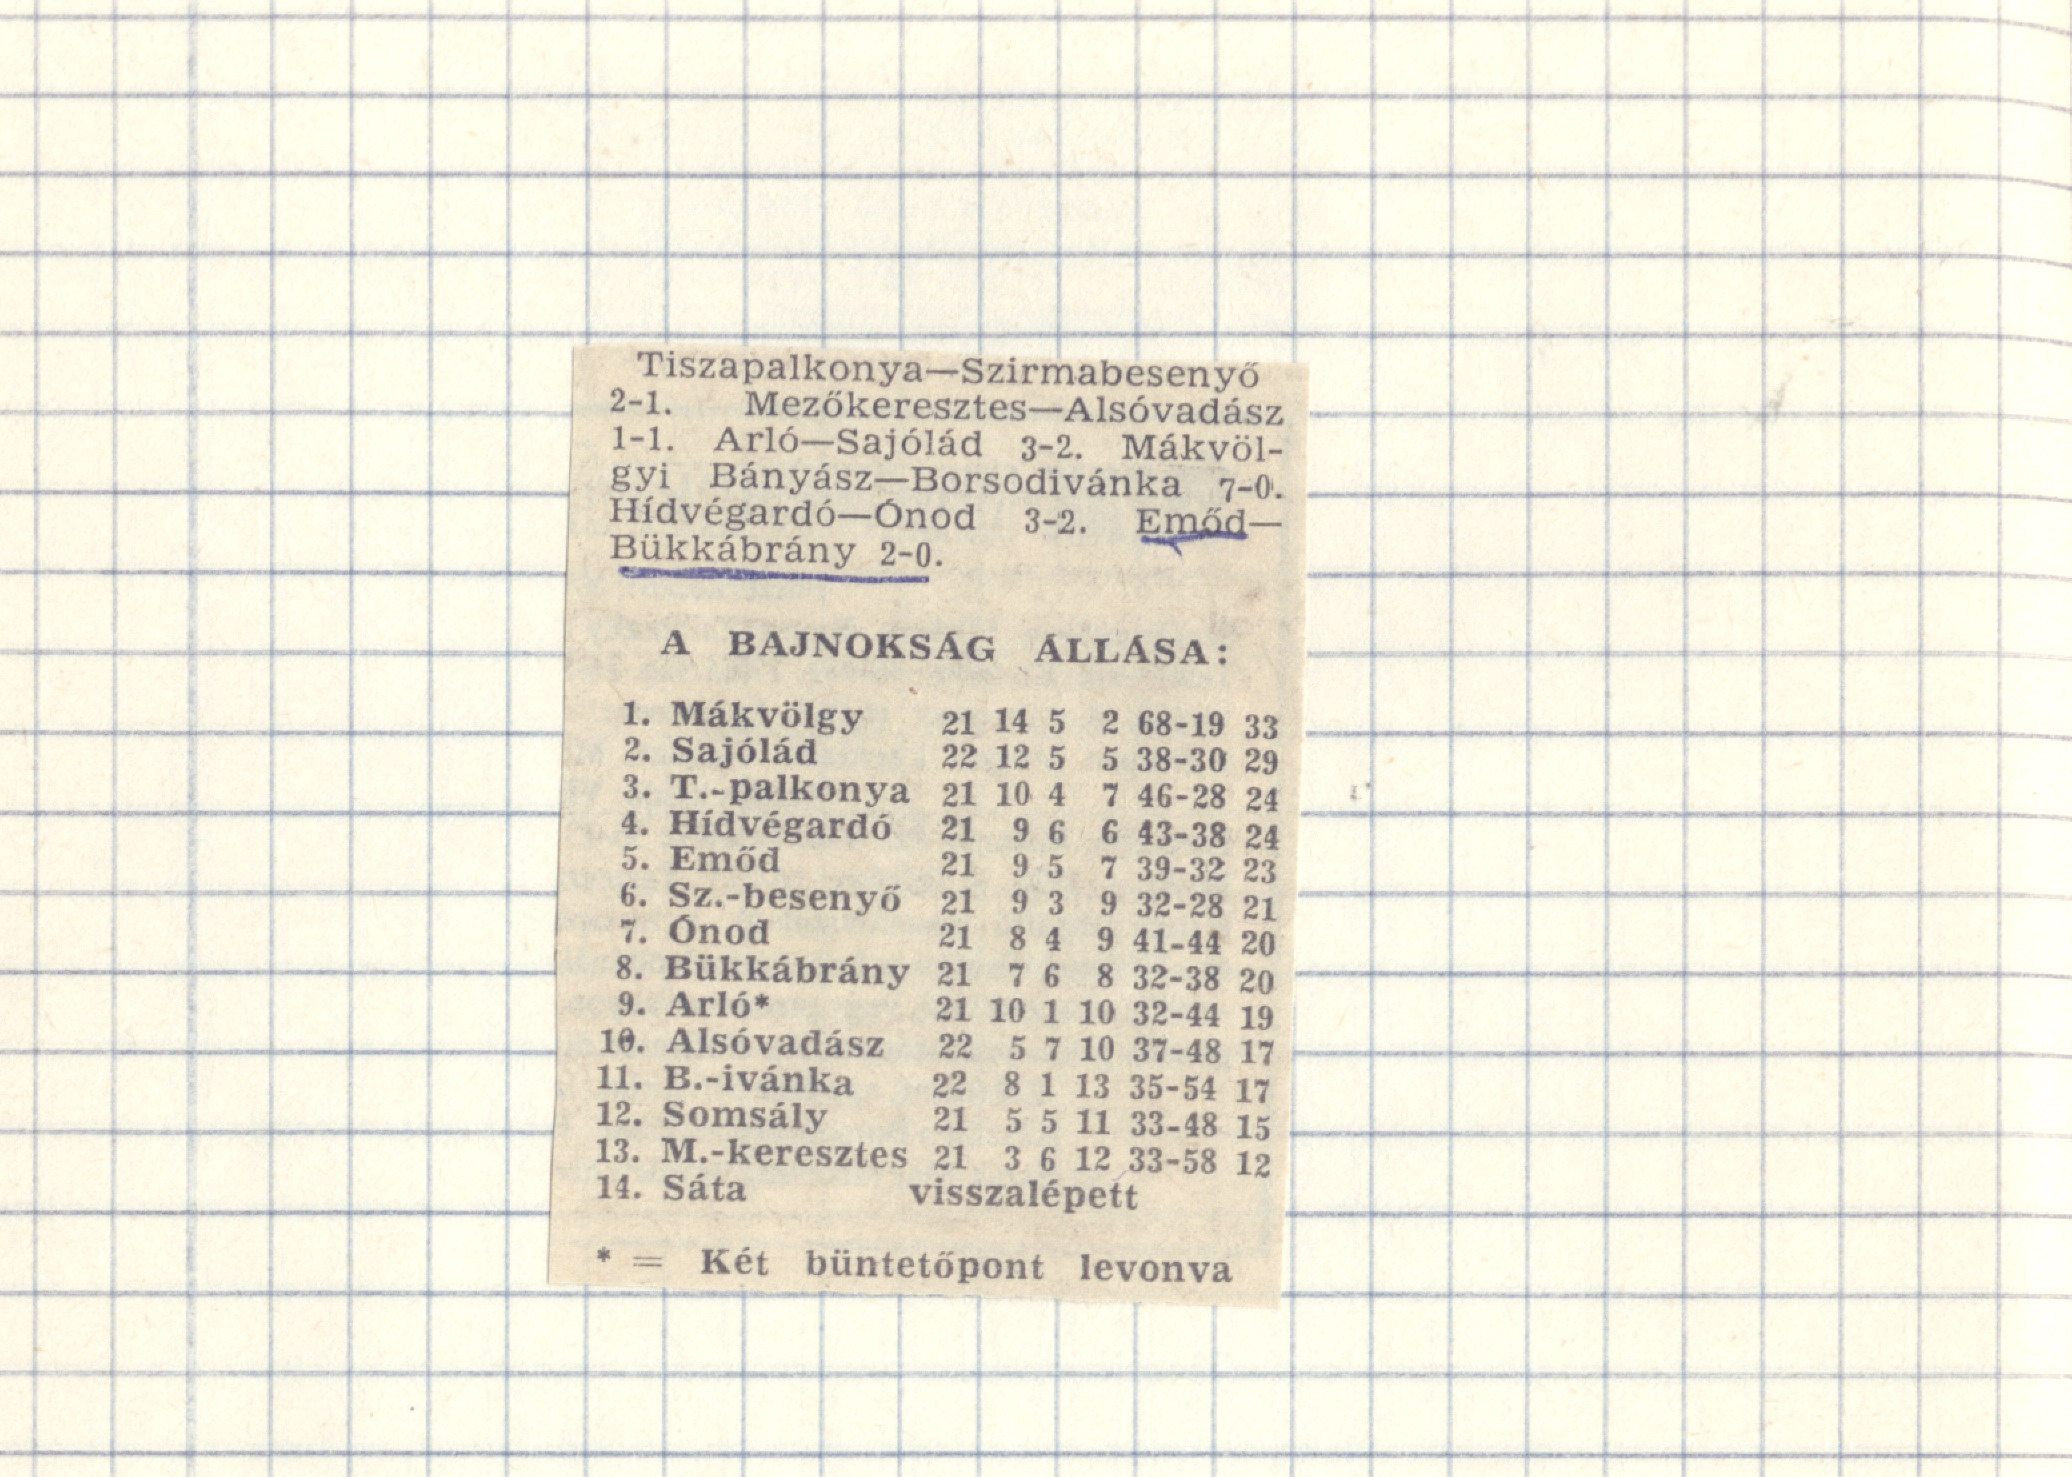 Tiszapalkonya—Szirmabesenyő
2-1. Mezőkeresztes—Alsóvadász
1-1. Arló—Sajólád 3-2. Mákvöl-
gyi Bányász—Borsodivánka 7-0.
Hídvégardó—Ónod 3-2. Emőd—
Bükkábrány 2-0.
A BAJNOKSÁG ÁLLÁSA:
1. Mákvölgy 21 14 5 2 68-19 33
2. Sajólád 22 12 5 5 38-30 29
3. T.-palkonya 21 10 4 7 46-28 24
4. Hídvégardó 21 9 6 6 43-38 24
5. Emőd 21 9 5 7 39-32 23
6. Sz.-besenyő 21 9 3 9 32-28 21
7. Ónod 21 8 4 9 41-44 20
8. Bükkábrány 21 7 6 8 32-38 20
9. Arló* 21 10 1 10 32-44 19
10. Alsóvadász 22 5 7 10 37-48 17
11. B.-ivánka 22 8 1 13 35-54 17
12. Somsály 21 5 5 11 33-48 15
13. M.-keresztes 21 3 6 12 33-58 12
14. Sáta visszalépett
* = Két büntetőpont levonva